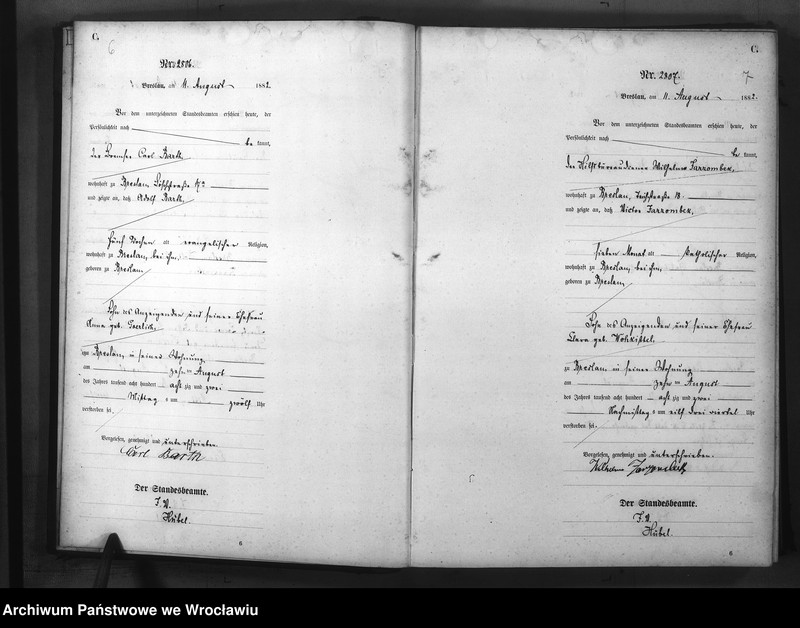 C.
6
Nr. 2806.
Breslau, am 11. August 1882.
Vor dem unterzeichneten Standesbeamten erschien heute, der
Persönlichkeit nach
be kannt,
der Bremser Carl Barth,
wohnhaft zu Breslau,
und zeigte an, daß Adolf Barth,
fünf Wochen alt evangelischer Religion,
wohnhaft zu Breslau, bei ihm,
geboren zu Breslau
Sohn des Anzeigenden und seiner Ehefrau
Anna geb.
zu Breslau, in seiner Wohnung,
am zehnten August
des Jahres tausend acht hundert achtzig und zwei
Mittag s um zwölf Uhr
verstorben sei.
Vorgelesen, genehmigt und unterschrieben.
Carl Barth
Der Standesbeamte.
I. V.
Hübel.
6
C.
7
Nr. 2807.
Breslau, am 11. August 1882.
Vor dem unterzeichneten Standesbeamten erschien heute, der
Persönlichkeit nach
be kannt,
der Hilfsbureaudiener Wilhelm Jarzombek,
wohnhaft zu Breslau, 18.
und zeigte an, daß Victor Jarzombek,
sieben Monat alt katholischer Religion,
wohnhaft zu Breslau, bei ihm,
geboren zu Breslau
Sohn des Anzeigenden und seiner Ehefrau
Clara geb.
zu Breslau in seiner Wohnung
am zehnten August
des Jahres tausend acht hundert achtzig und zwei
Nachmittag s um eilf drei viertel Uhr
verstorben sei.
Vorgelesen, genehmigt und unterschrieben.
Wilhelm Jarzombek
Der Standesbeamte.
I. V.
Hübel.
6
Archiwum Państwowe we Wrocławiu